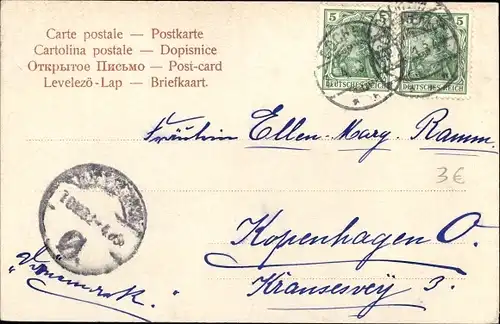 Carte postale — Postkarte
Cartolina postale — Dopisnice
Открытое Письмо — Post-card
Levelező-Lap — Briefkaart.
5 5
5 5
DEUTSCHES REICH
DEUTSCHES REICH
Fräulein Ellen-Marg. Ramm.
3€
Kopenhagen O.
Kransesvej 3.
"Danemark."